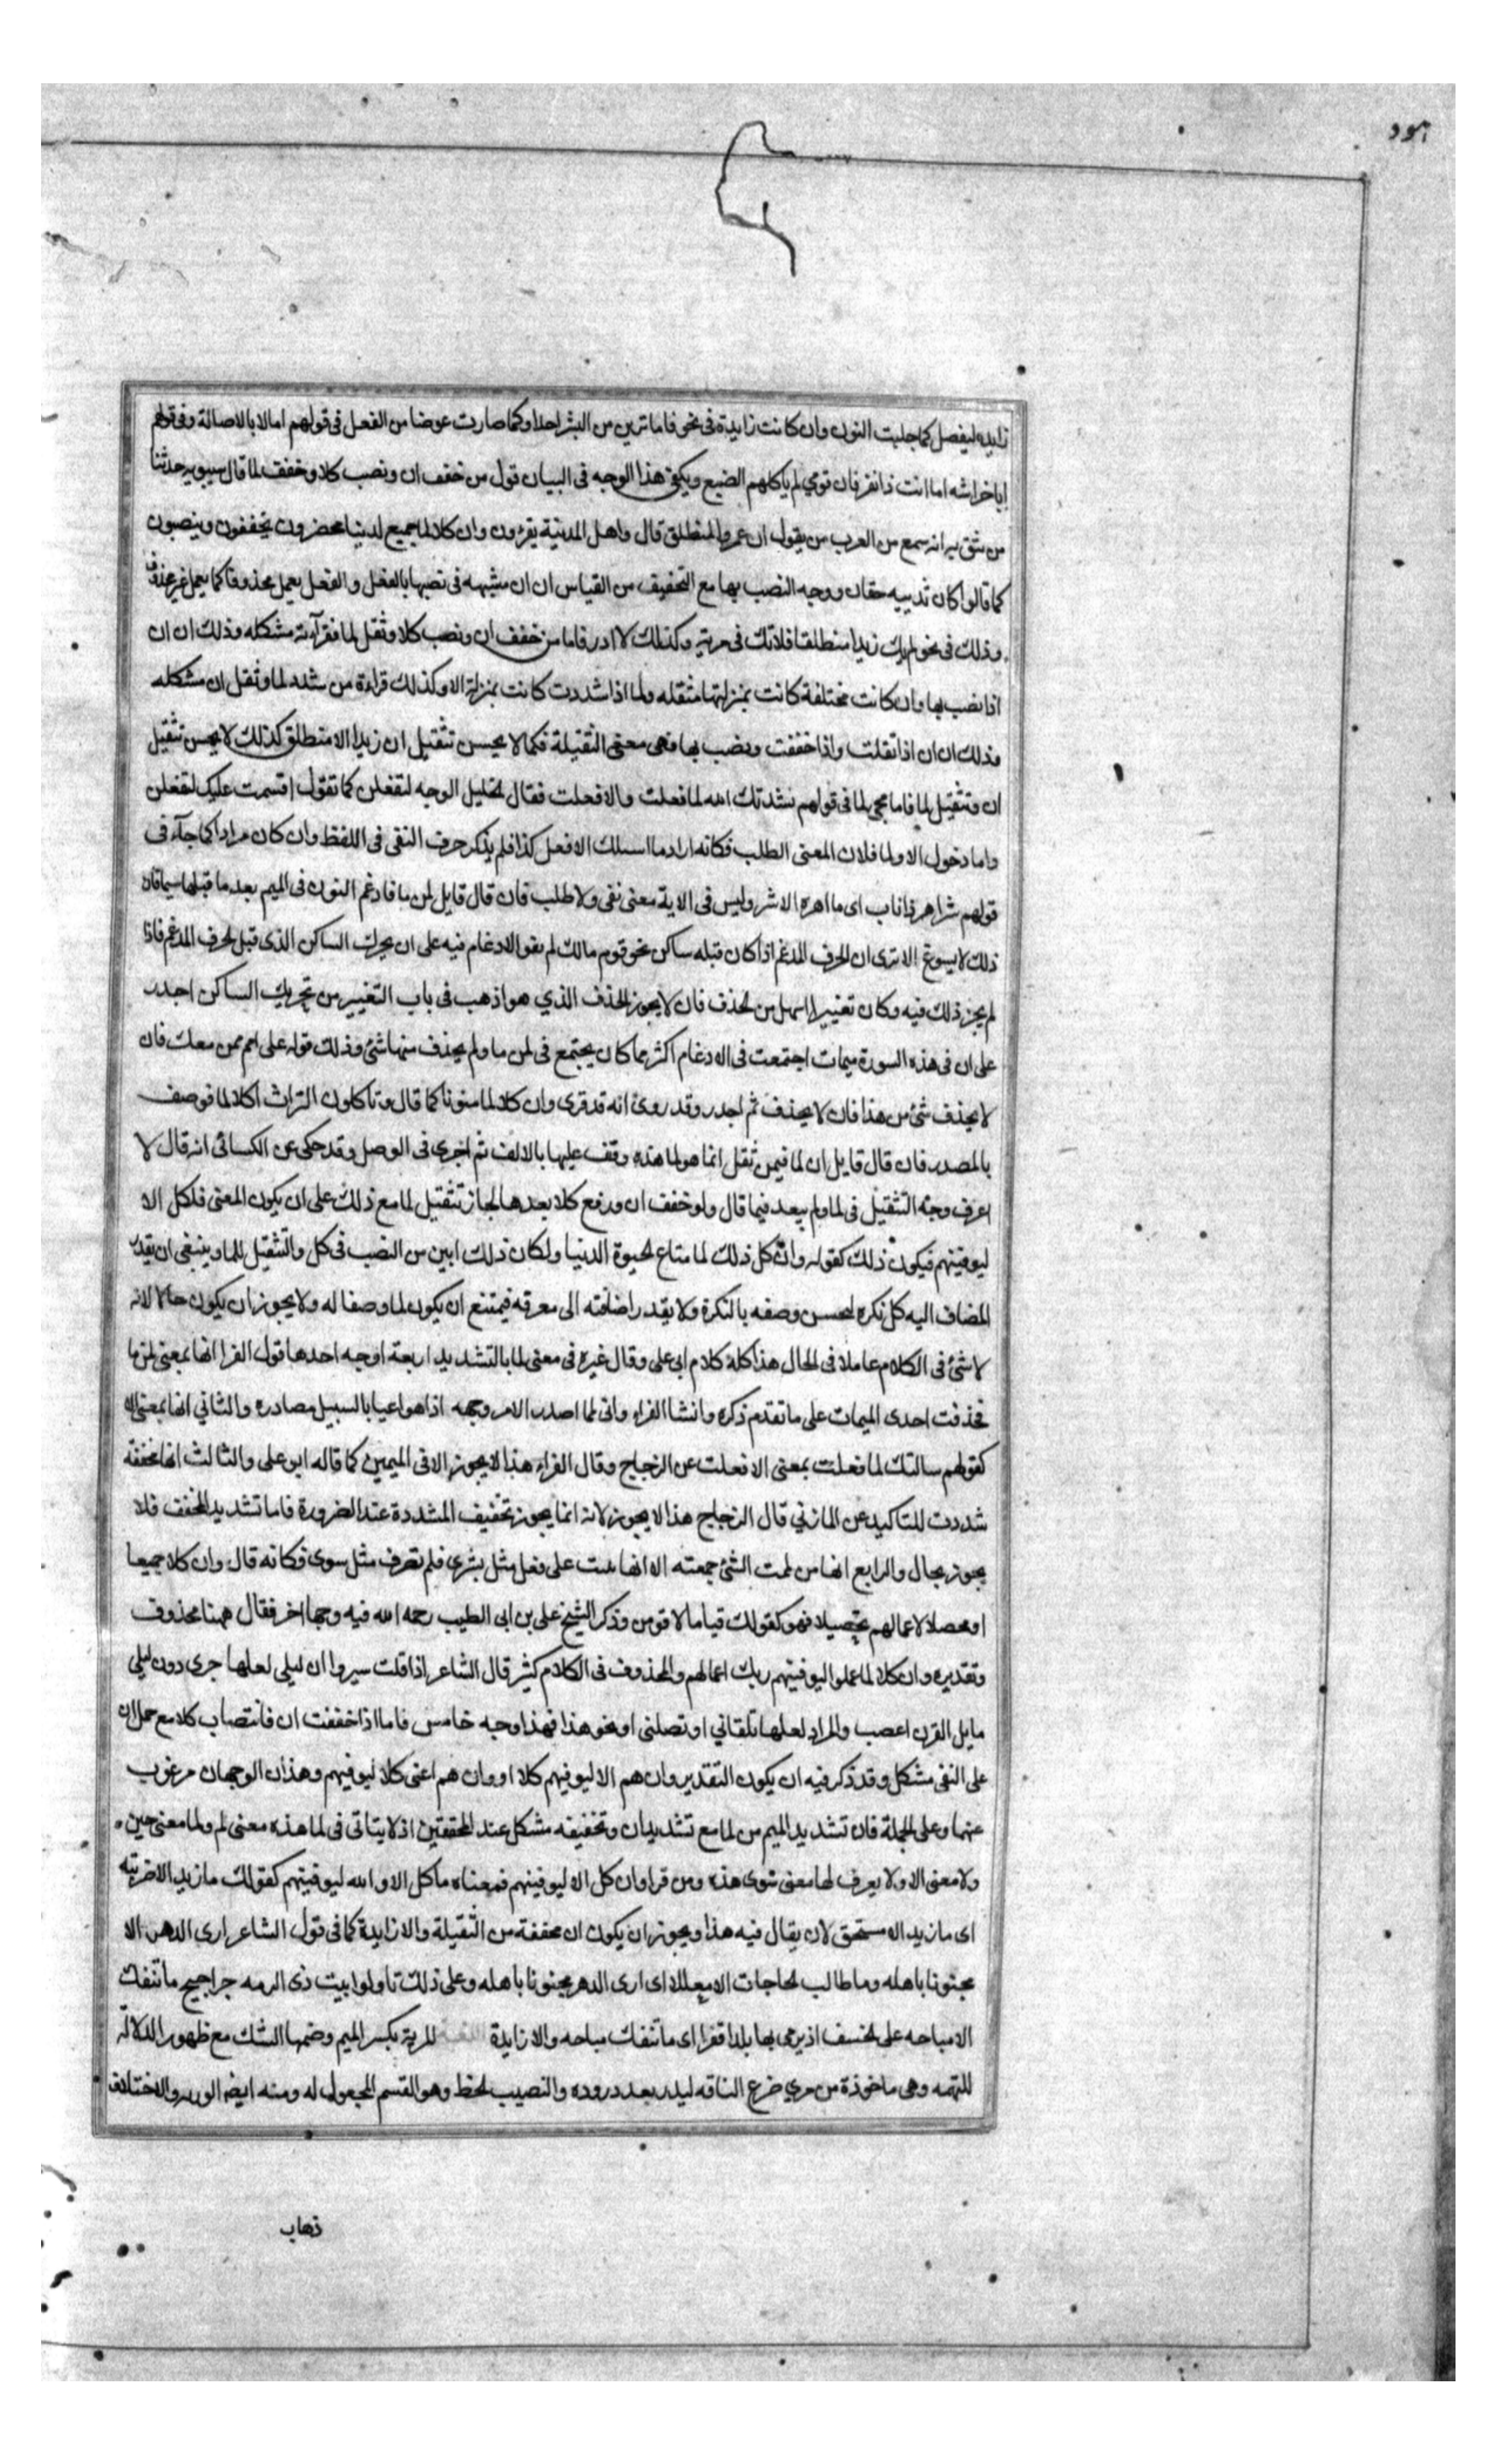 هود
زايده ليفصل كما جلبت النون وان كانت زايدة فى نحو فاما ترين من البشر احدا وكما صارت عوضا من الفعل فى قولهم اما لا بالاصالة وفى قولهم
ابا خراشه اما انت ذا نفر فان قومي لم ياكلهم الضبع ويكفى هذا الوجه فى البيان قول من خفف ان ونصب كلا وخفف لما قال سيبويه حدثنا
من نثق به انه سمع من العرب من يقول ان عمروا لمنطلق قال واهل المدينة يقرءون وان كلا لما جميع لدينا محضرون يخففون وينصبون
كما قالوا كان ثدييه حقان ووجه النصب بها مع التخفيف من القياس ان ان مشبهه فى نصبها بالفعل والفعل يعمل محذوفا كما يعمل غير محذوف
وذلك فى نحو لم يك زيدا منطلقا فلا تك فى مرية وكذلك لا ادر فاما من خفف ان ونصب كلا وثقل لما فقرآءته مشكله وذلك ان ان
اذا نصب بها وان كانت مختلفة كانت بمنزلتها مثقله ولما اذا شددت كانت بمنزلة الا وكذلك قراءة من شدد لما وثقل ان مشكله
وذلك ان ان اذا ثقلت واذا خففت ونصب بها فهى معنى الثقيلة فكما لا يحسن تثقيل ان زيدا الا منطلق كذلك لا يحسن تثقيل
ان وتثقيل لما فاما مجى لما فى قولهم نشدتك الله لما فعلت والا فعلت فقال الخليل الوجه لتفعلن كما تقول اقسمت عليك لتفعلن
واما دخول الا ولما فلان المعنى الطلب فكانه اراد ما اسىلك الا فعل كذا فلم يذكر حرف النفى فى اللفظ وان كان مرادا كما جآء فى
قولهم شر اهر ذا ناب اى ما اهره الا شر وليس فى الاية معنى نفى ولا طلب فان قال قايل لمن ما فادغم النون فى الميم بعد ما قبلها ميما فان
ذلك لا يسوغ الا ترى ان الحرف المدغم اذا كان قبله ساكن نحو قوم مالك لم يقو الادغام فيه على ان يحرك الساكن الذى قبل الحرف المدغم فاذا
لم يجز ذلك فيه وكان تغييرا اسهل من الحذف فان لا يجوز الحذف الذي هو اذهب فى باب التغيير من تحريك الساكن اجدر
على ان فى هذه السورة ميمات اجتمعت فى الادغام اكثر مما كان يجتمع فى لمن ما ولم يحذف منها شئ وذلك قوله على امم ممن معك فان
لا يحذف شئ من هذا فان لا يحذف ثم اجدر وقد روى انه قد قرى وان كلا لما منونا كما قال وتاكلون التراث اكلا لما فوصف
بالمصدر فان قال قايل ان لما فيمن ثقل انما هو لما هذه وقف عليها بالالف ثم اجرى فى الوصل وقد حكى عن الكسائى انه قال لا
اعرف وجه التثقيل فى لما ولم يبعد فيما قال ولو خفف ان ورفع كلا بعدها لجاز تثقيل لما مع ذلك على ان يكون المعنى فلكل الا
ليوفينهم فيكون ذلك كقوله وان كل ذلك لما متاع الحيوة الدنيا ولكان ذلك ابين من النصب فى كل والتثقيل للما وينبغى ان يقدر
المضاف اليه كل نكره ليحسن وصفه بالنكرة ولا يقدر اضافته الى معرفه فيمتنع ان يكون لما وصفا له ولا يجوز ان يكون حالا لانه
لا شئ فى الكلام عاملا فى الحال هذا كله كلام ابى على وقال غيره فى معنى لما بالتشديد اربعة اوجه احدها قول الفرا انها بمعنى لمن ما
فحذفت احدى الميمات على ما تقدم ذكره وانشا الفراء وانى لما اصدر الامر وجهه اذا هو اعيا بالسبيل مصادره والثاني انها بمعنى الا
كقولهم سالتك لما فعلت بمعنى الا فعلت عن الزجاج وقال الفراء هذا لا يجوز الا فى الميمين كما قاله ابو على والثالث انها مخففة
شددت للتاكيد عن المازني قال الزجاج هذا لا يجوز لانه انما يجوز تخفيف المشددة عند الضرورة فاما تشديد المخفف فلا
يجوز بحال والرابع انها من لممت الشئ جمعته الا انها بنيت على فعلى مثل بشرى فلم تصرف مثل سوى فكانه قال وان كلا جميعا
او محصلا لاعمالهم تحصيلا فهو كقولك قياما لاقومن وذكر الشيخ على بن ابى الطيب رحمه الله فيه وجها اخر فقال ههنا محذوف
وتقديره وان كلا لما عملوا ليوفينهم ربك اعمالهم والمحذوف فى الكلام كثير قال الشاعر اذا قلت سيروا ان ليلى لعلها جرى دون ليلى
مايل القرن اعصب والمراد لعلها تلقاني او تصلنى او نحو هذا فهذا وجه خامس فاما اذا خففت ان فانتصاب كلا مع حمل ان
على النفى مشكل وقد ذكر فيه ان يكون التقدير وان هم الا ليوفينهم كلا او وان هم اعنى كلا ليوفينهم وهذان الوجهان مرغوب
عنهما وعلى الجملة فان تشديد الميم من لما مع تشديد ان وتخفيفه مشكل عند المحققين اذ لا يتاتى فى لما هذه معنى لم ولما معنى حين
ولا معنى الا ولا يعرف لها معنى سوى هذه ومن قرا وان كل الا ليوفينهم فمعناه ما كل الا والله ليوفينهم كقولك ما زيد الا ضربته
اى ما زيد الا مستحق لان يقال فيه هذا ويجوز ان يكون ان مخففة من الثقيلة والا زايدة كما فى قول الشاعر ارى الدهر الا
مجنونا باهله وما طالب الحاجات الا معللا اى ارى الدهر مجنونا باهله وعلى ذلك تاولوا بيت ذى الرمه جراجيج ما تنفك
الا مباحه على الخسف او يرمى بها بلدا قفرا اى ما تنفك مباحه والا زايدة اللغة المرية بكسر الميم وضمها الشك مع ظهور الدلالة
للتهمه وهى ماخوذة من مري ضرع الناقه ليدر بعد دروده والنصيب الحظ وهو القسم المجعول له ومنه ايضا الورد والاختلاف
ذهاب